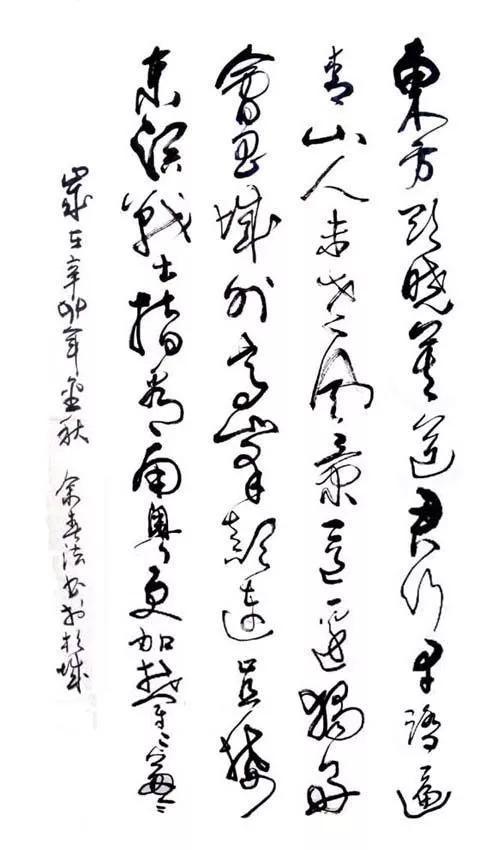 東方欲曉莫道君行早踏遍
青山人未老風景這邊獨好
會昌城外高峯顛連直接
東溟戰士指看南粵更加鬱々葱々
歲在辛卯年金秋 余春法書於杭城